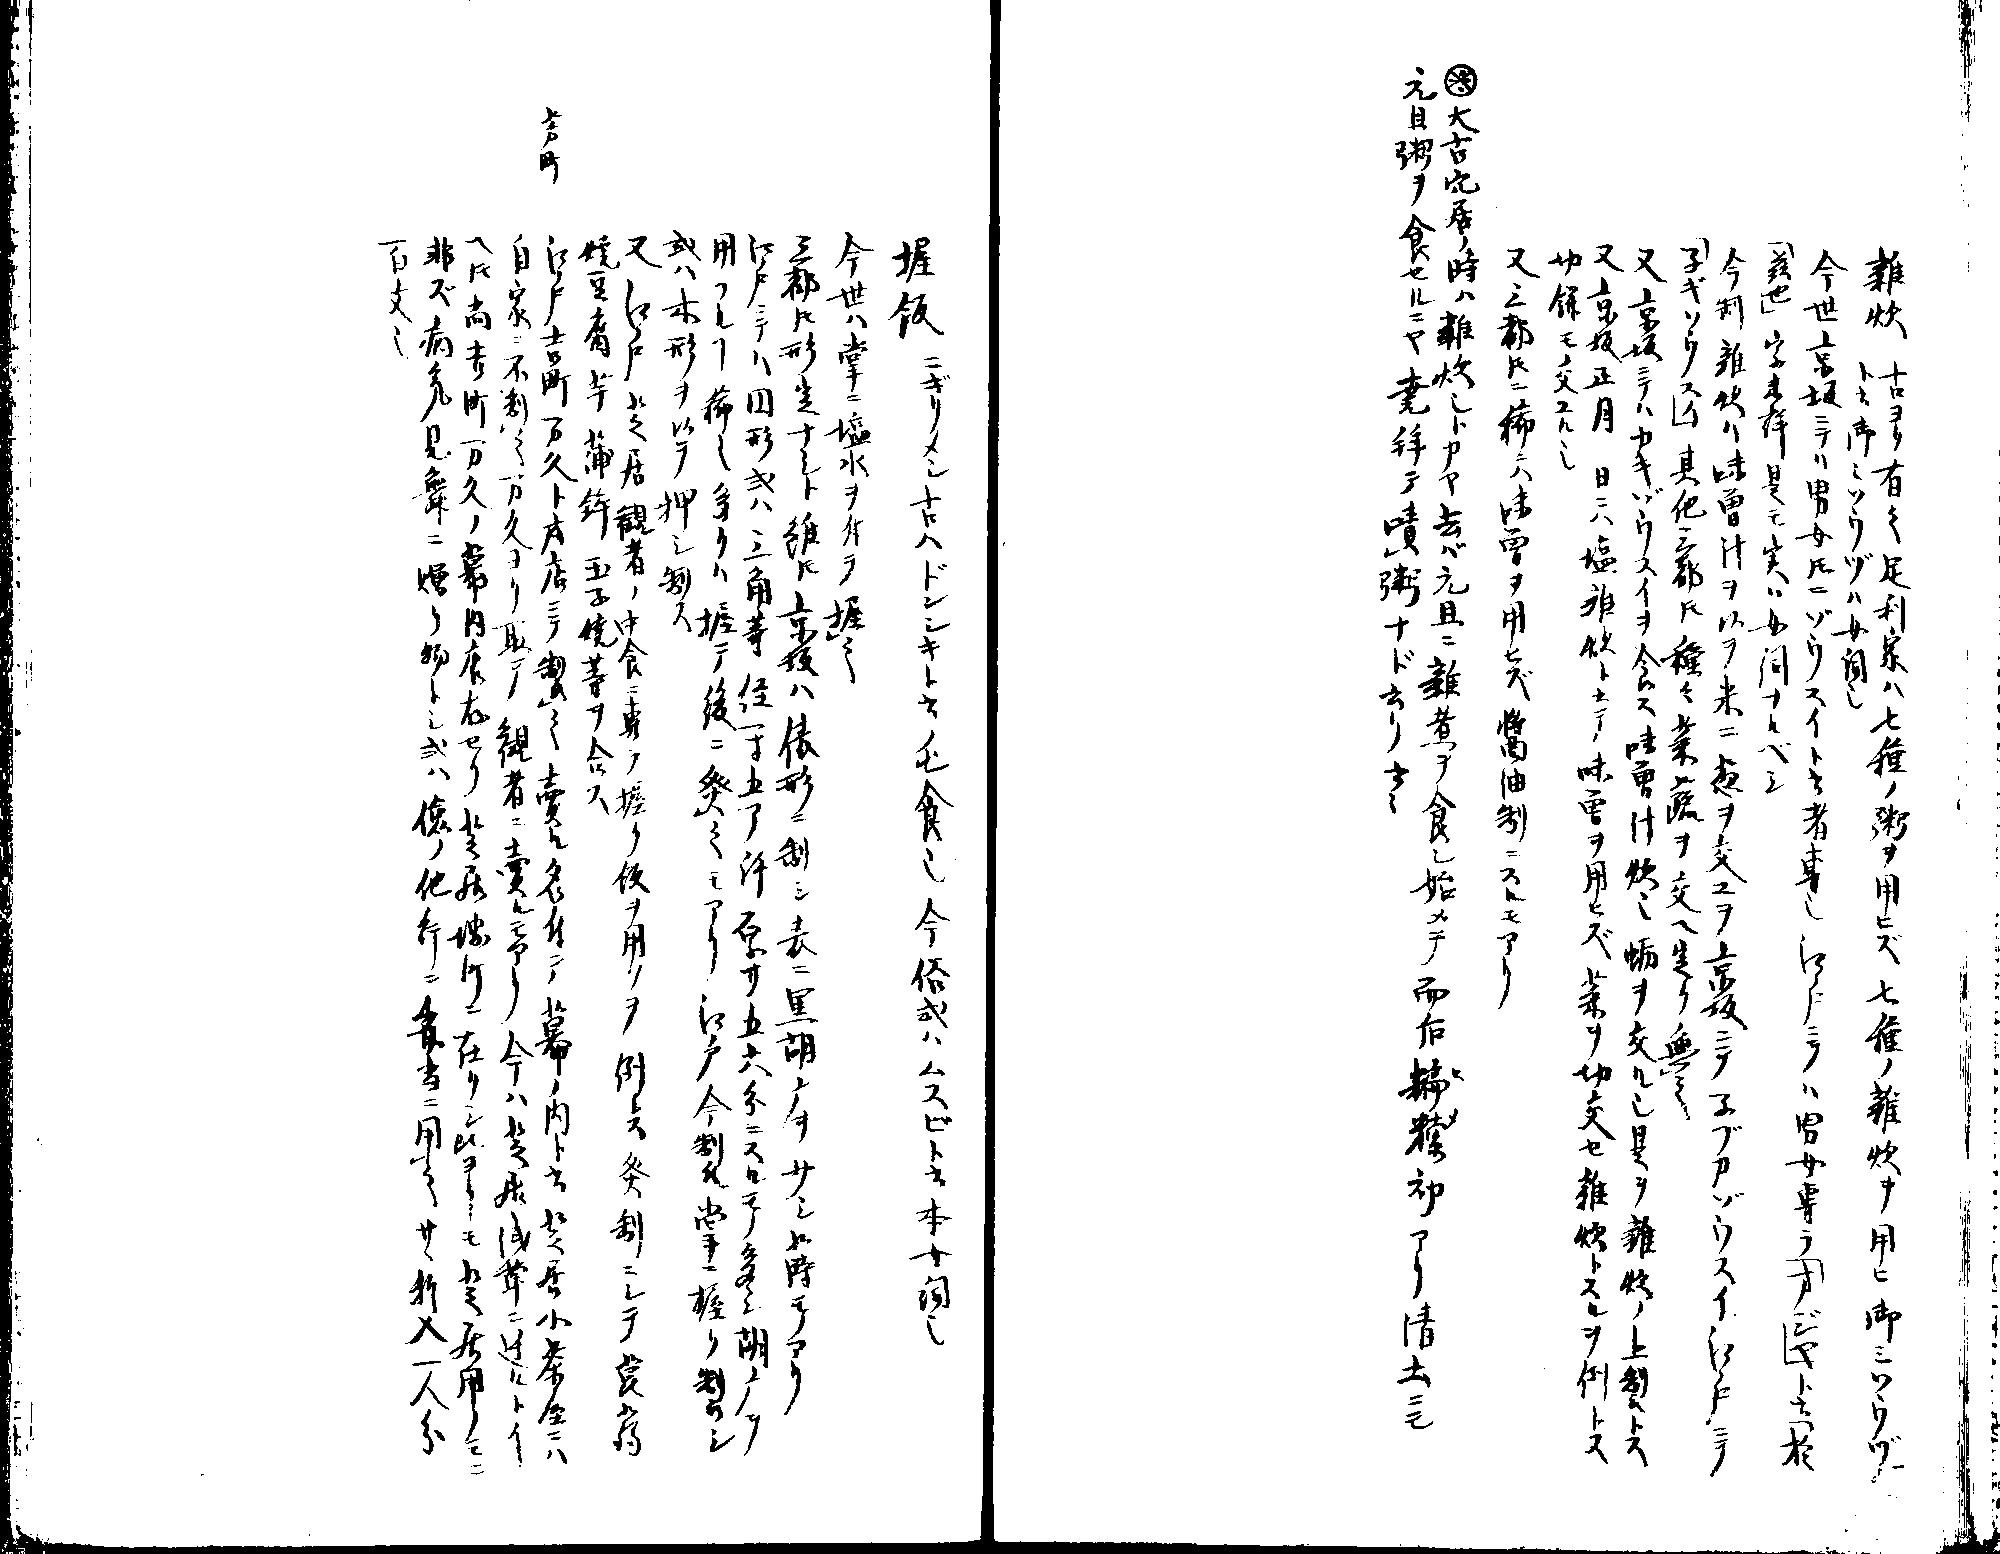 雑炊 古ヨリ有之足利家ハ七種ノ粥ヲ用ヒズ七種ノ雑炊ヲ用ヒ御ミソウヅ
ト云御ミソウヅハ女詞也
今世京坂ニテハ男女トモニゾウスイト云者専也江戸ニテハ男女専ラオジヤト云於
字未詳是モ実ハ女詞ナルベシ
今制雑炊ハ味曽汁ヲ以テ米ニ葱ヲ交ユヲ京坂ニテ子ブカゾウスイ江戸ニテ
子ギゾウスイ其他三都トモ種々菜蔬ヲ交ヘ定リ無之
又京坂ニテハカキゾウスイヲ食ス味曽汁炊也蛎ヲ交ル也是ヲ雑炊ノ上製トス
又京坂正月 日ニハ塩雑炊ト云テ味曽ヲ用ヒズ菜ヲ切交セ雑炊トスルヲ例トス
切餅モ交ユル也
又三都トモニ稀ニハ味曽ヲ用ヒズ醤油制ニスルモアリ
大古穴居ノ時ハ雑炊也トカヤ去バ元旦ニ雑煮ヲ食シ始メテ而后 初アリ清土ニモ
元日粥ヲ食セルニヤ 粥ナド云リ云々
握飯 ニギリメシ古ハドンジキト云ノ毛食也今俗或ハムスビト云本女詞也
今世ハ掌ニ塩水ヲ付テ握之
三都トモ形定ナシト雖トモ京坂ハ俵形ニ制シ表ニ黒胡マヲサシ蒔モアリ
江戸ニテハ円形或ハ三角等径一寸五ア許厚サ五六分ニスルモノ多シ胡マヲ
用フルコト稀也多クハ握テ後ニ焚之モアリ江戸今製ハ掌ニ握リ製シ
或ハ木形ヲ以テ押シ制ス
又江戸芝居観者ノ中食ニ専ラ握リ飯ヲ用フヲ例トス焚制ニシテ蒟蒻
焼豆腐芋蒲鉾玉子焼等ヲ合ス
江戸芳町万久ト云店ニテ製之売ル名付テ幕ノ内ト云芝居小茶屋ニハ
自家ニ不制之万久ヨリ取テ観者ニ売ル モアリ今ハ芝居浅草ニ遷ルトイ
ヘトモ尚芳町万久ノ幕内 存セリ芝居堺町ニ在リシ ヨリモ芝居用ノミニ
非ズ病気見舞ニ贈リ物トシ或ハ他ノ他行ニ弁当ニ用之サヽ折入一人分
百文也
芳町